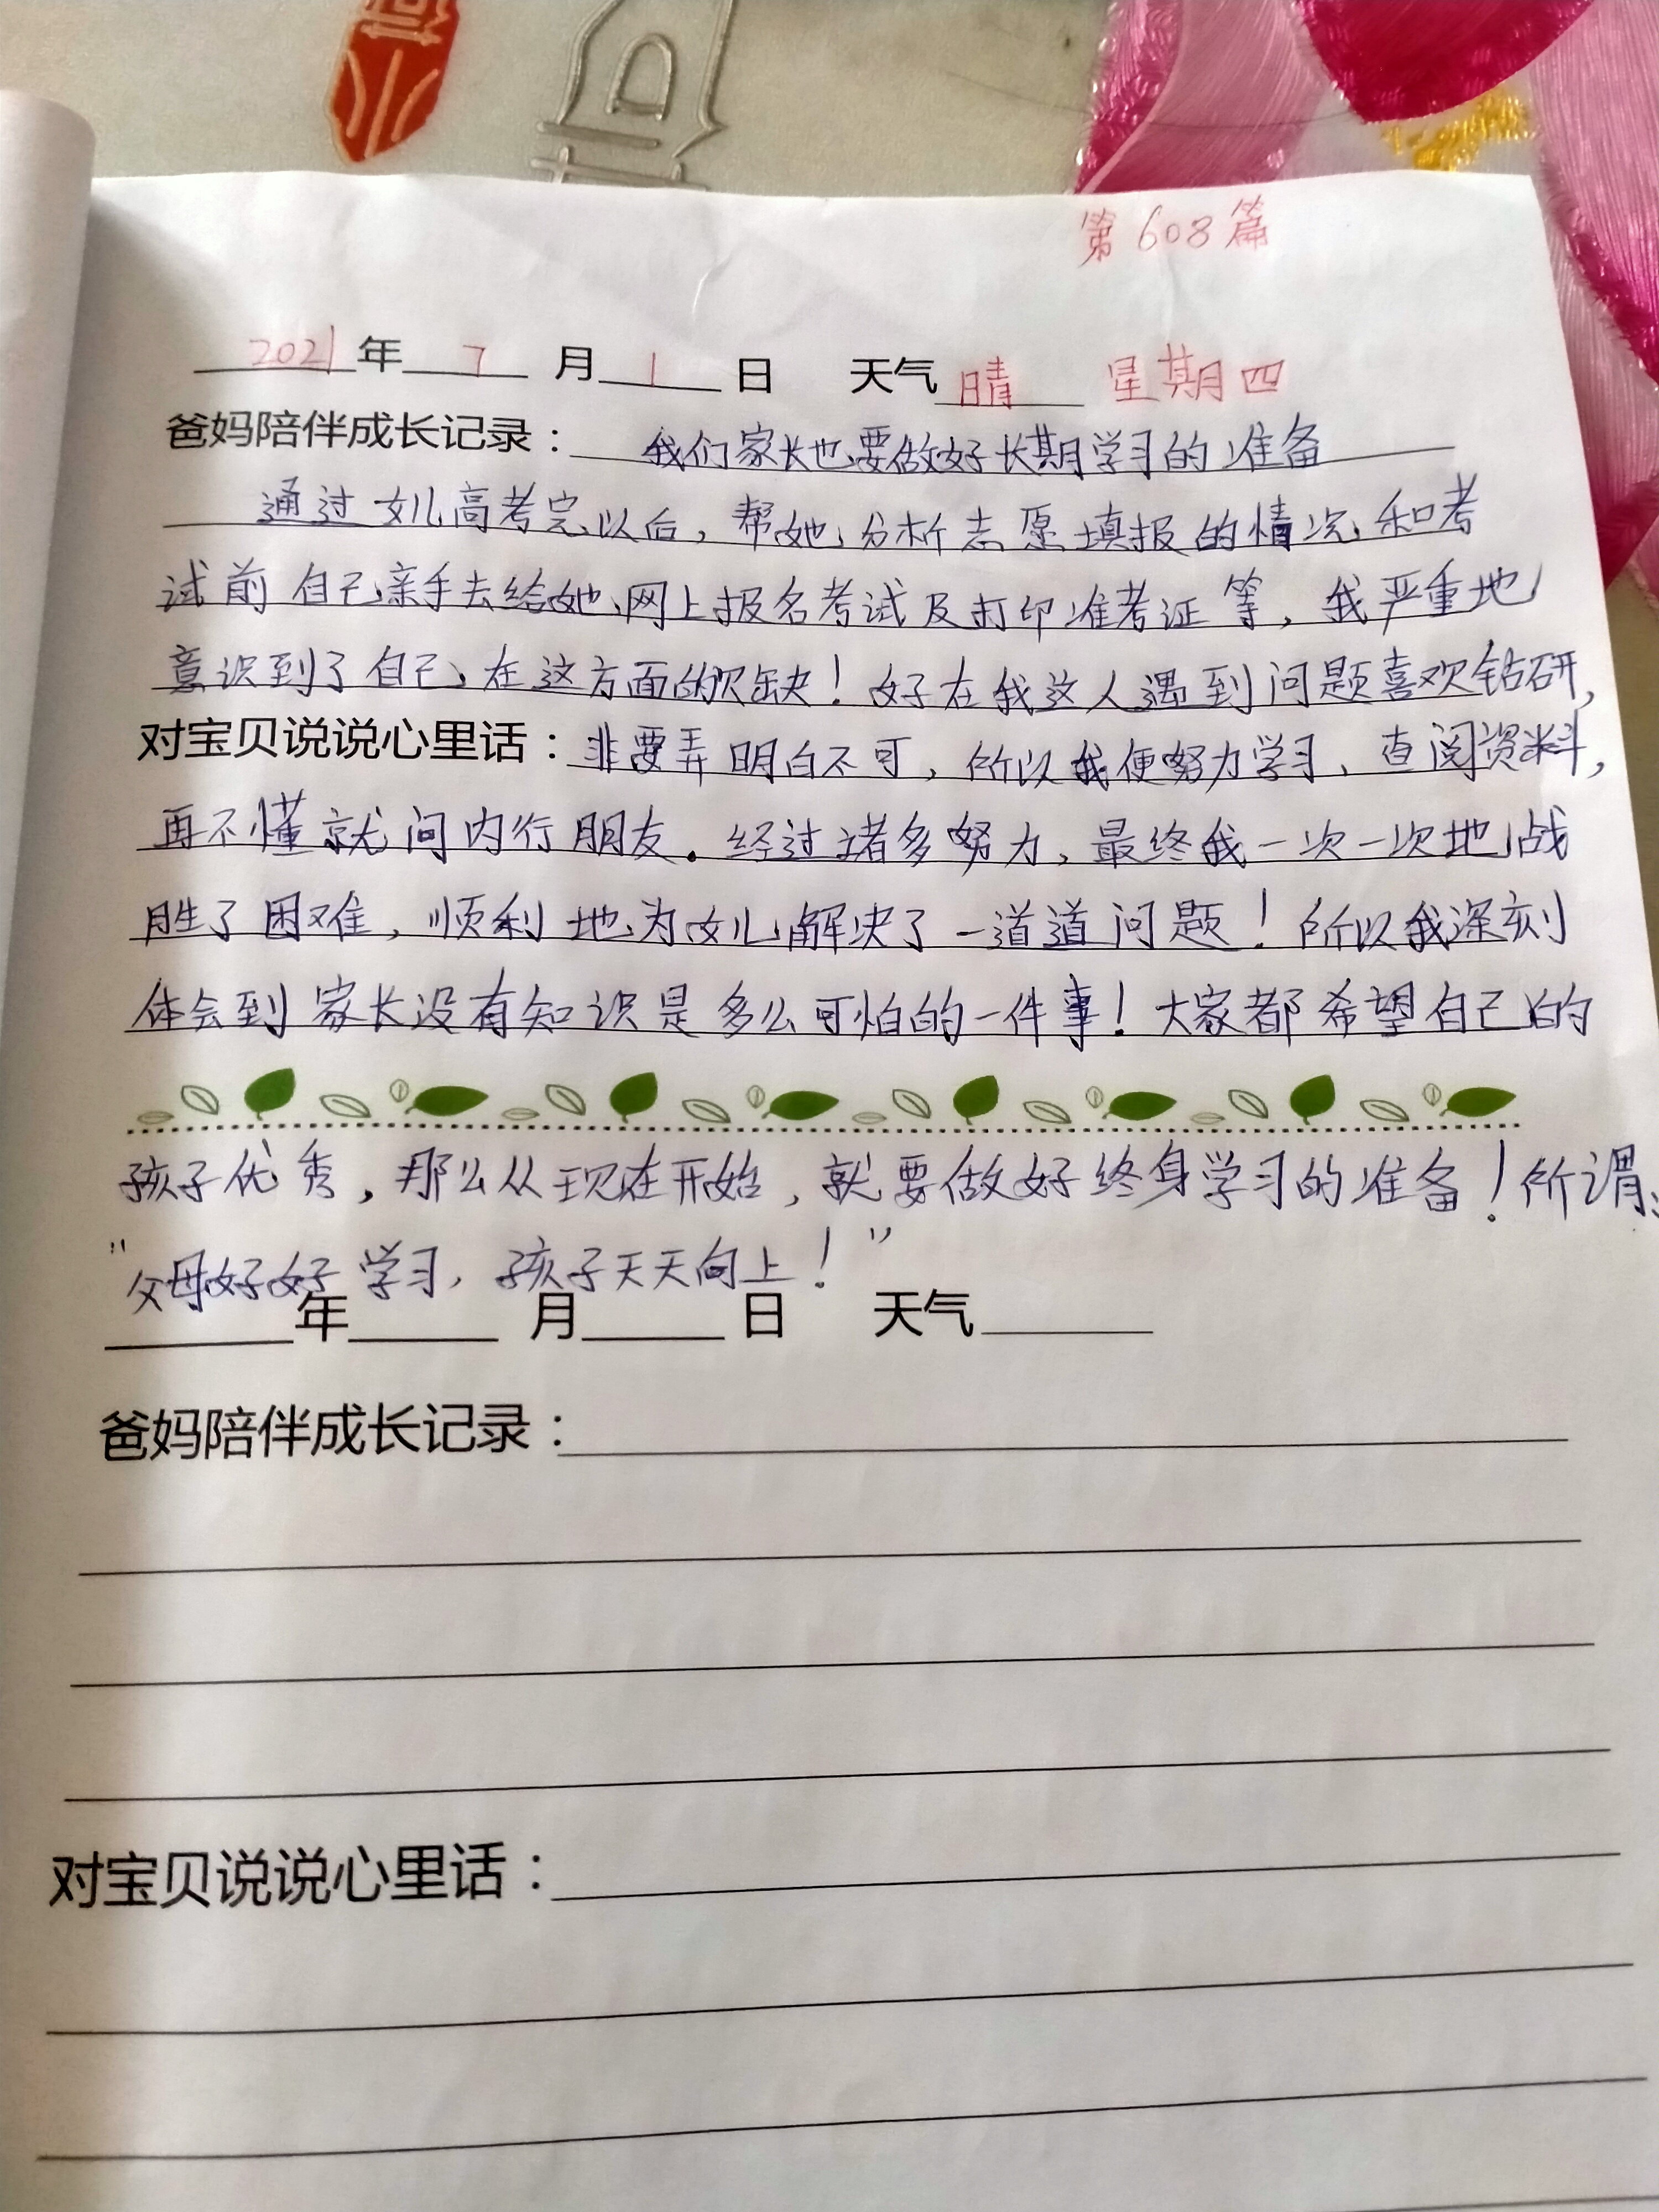 第608篇
2021年 7 月 1 日 天气 晴 星期四
爸妈陪伴成长记录：我们家长也要做好长期学习的准备
通过女儿高考完以后，帮她分析志愿填报的情况、和考
试前自己亲手去给她网上报名考试及打印准考证等，我严重地
意识到了自己在这方面的欠缺！好在我这人遇到问题喜欢钻研，
对宝贝说说心里话：非要弄明白不可，所以我便努力学习、查阅资料，
再不懂就问内行朋友。经过诸多努力，最终我一次一次地战
胜了困难，顺利地为女儿解决了一道道问题！所以我深刻
体会到家长没有知识是多么可怕的一件事！大家都希望自己的
孩子优秀，那么从现在开始，就要做好终身学习的准备！所谓：
“父母好好学习，孩子天天向上！”
年 月 日 天气
爸妈陪伴成长记录：
对宝贝说说心里话：